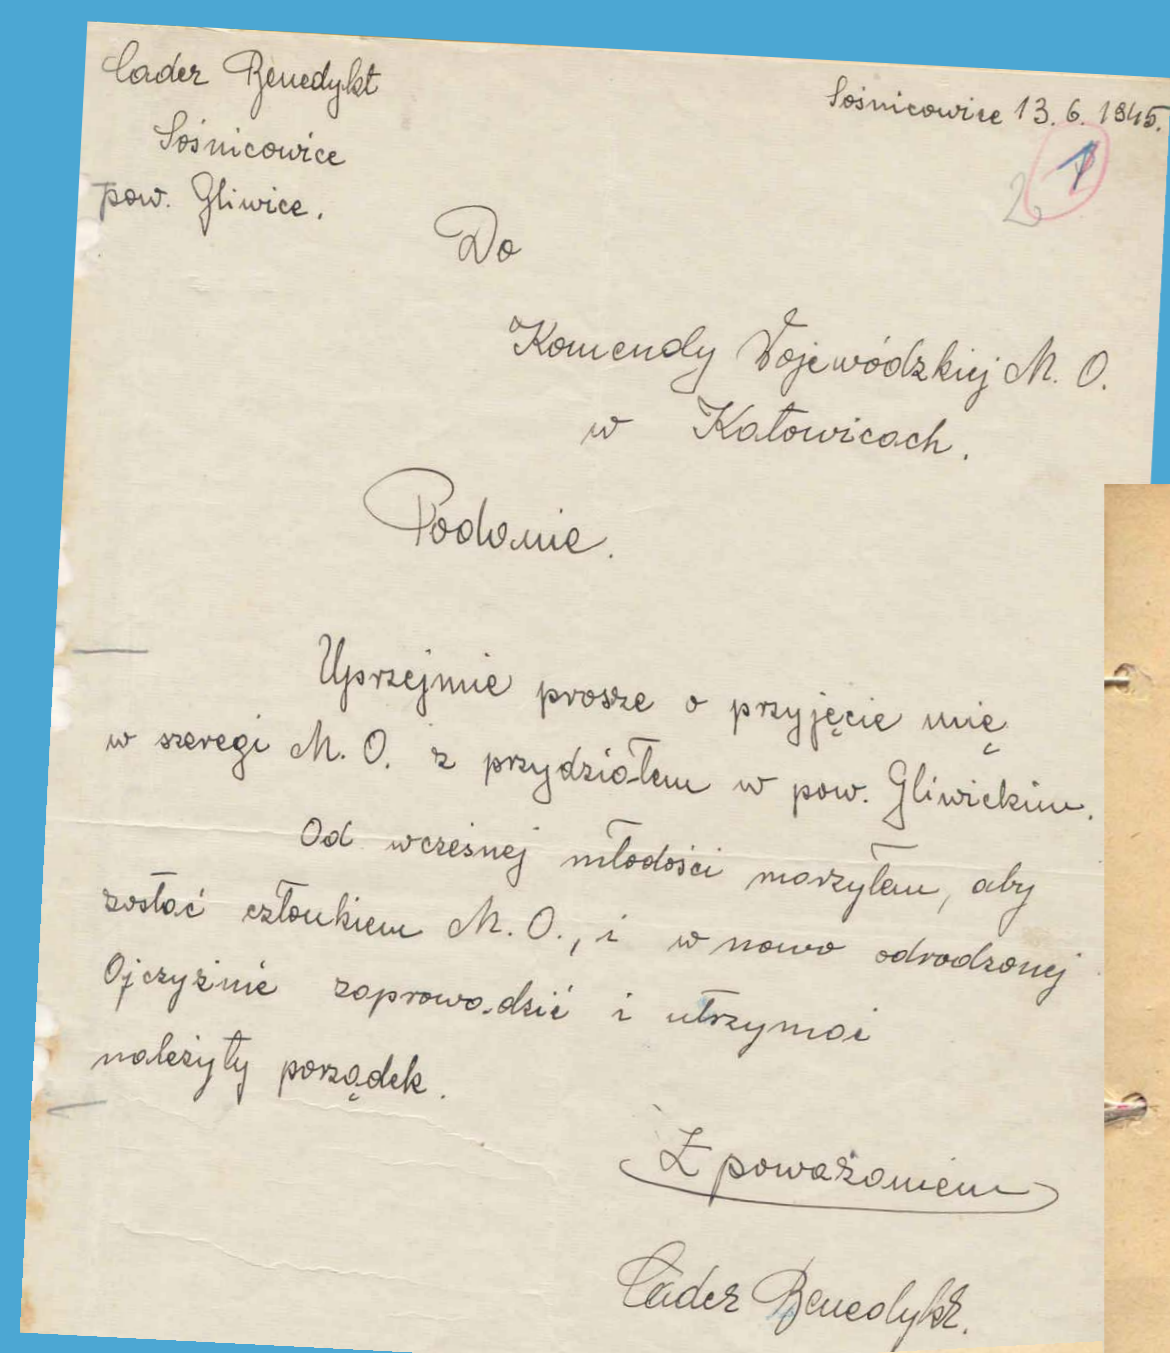 Cader Benedykt
Sośnicowice 13. 6. 1945.
Sośnicowice
pow. Gliwice.
2 1
Do
Komendy Wojewódzkiej M. O.
w Katowicach.
Podanie.
Uprzejmie prosze o przyjęcie mię
w szeregi M. O. z przydziałem w pow. Gliwickim.
Od wczesnej młodości marzyłem, aby
zostać członkiem M. O., i w nowo odrodzonej
Ojczyźnie zaprowadzić i utrzymać
należyty porządek.
Z poważaniem
Cader Benedykt.